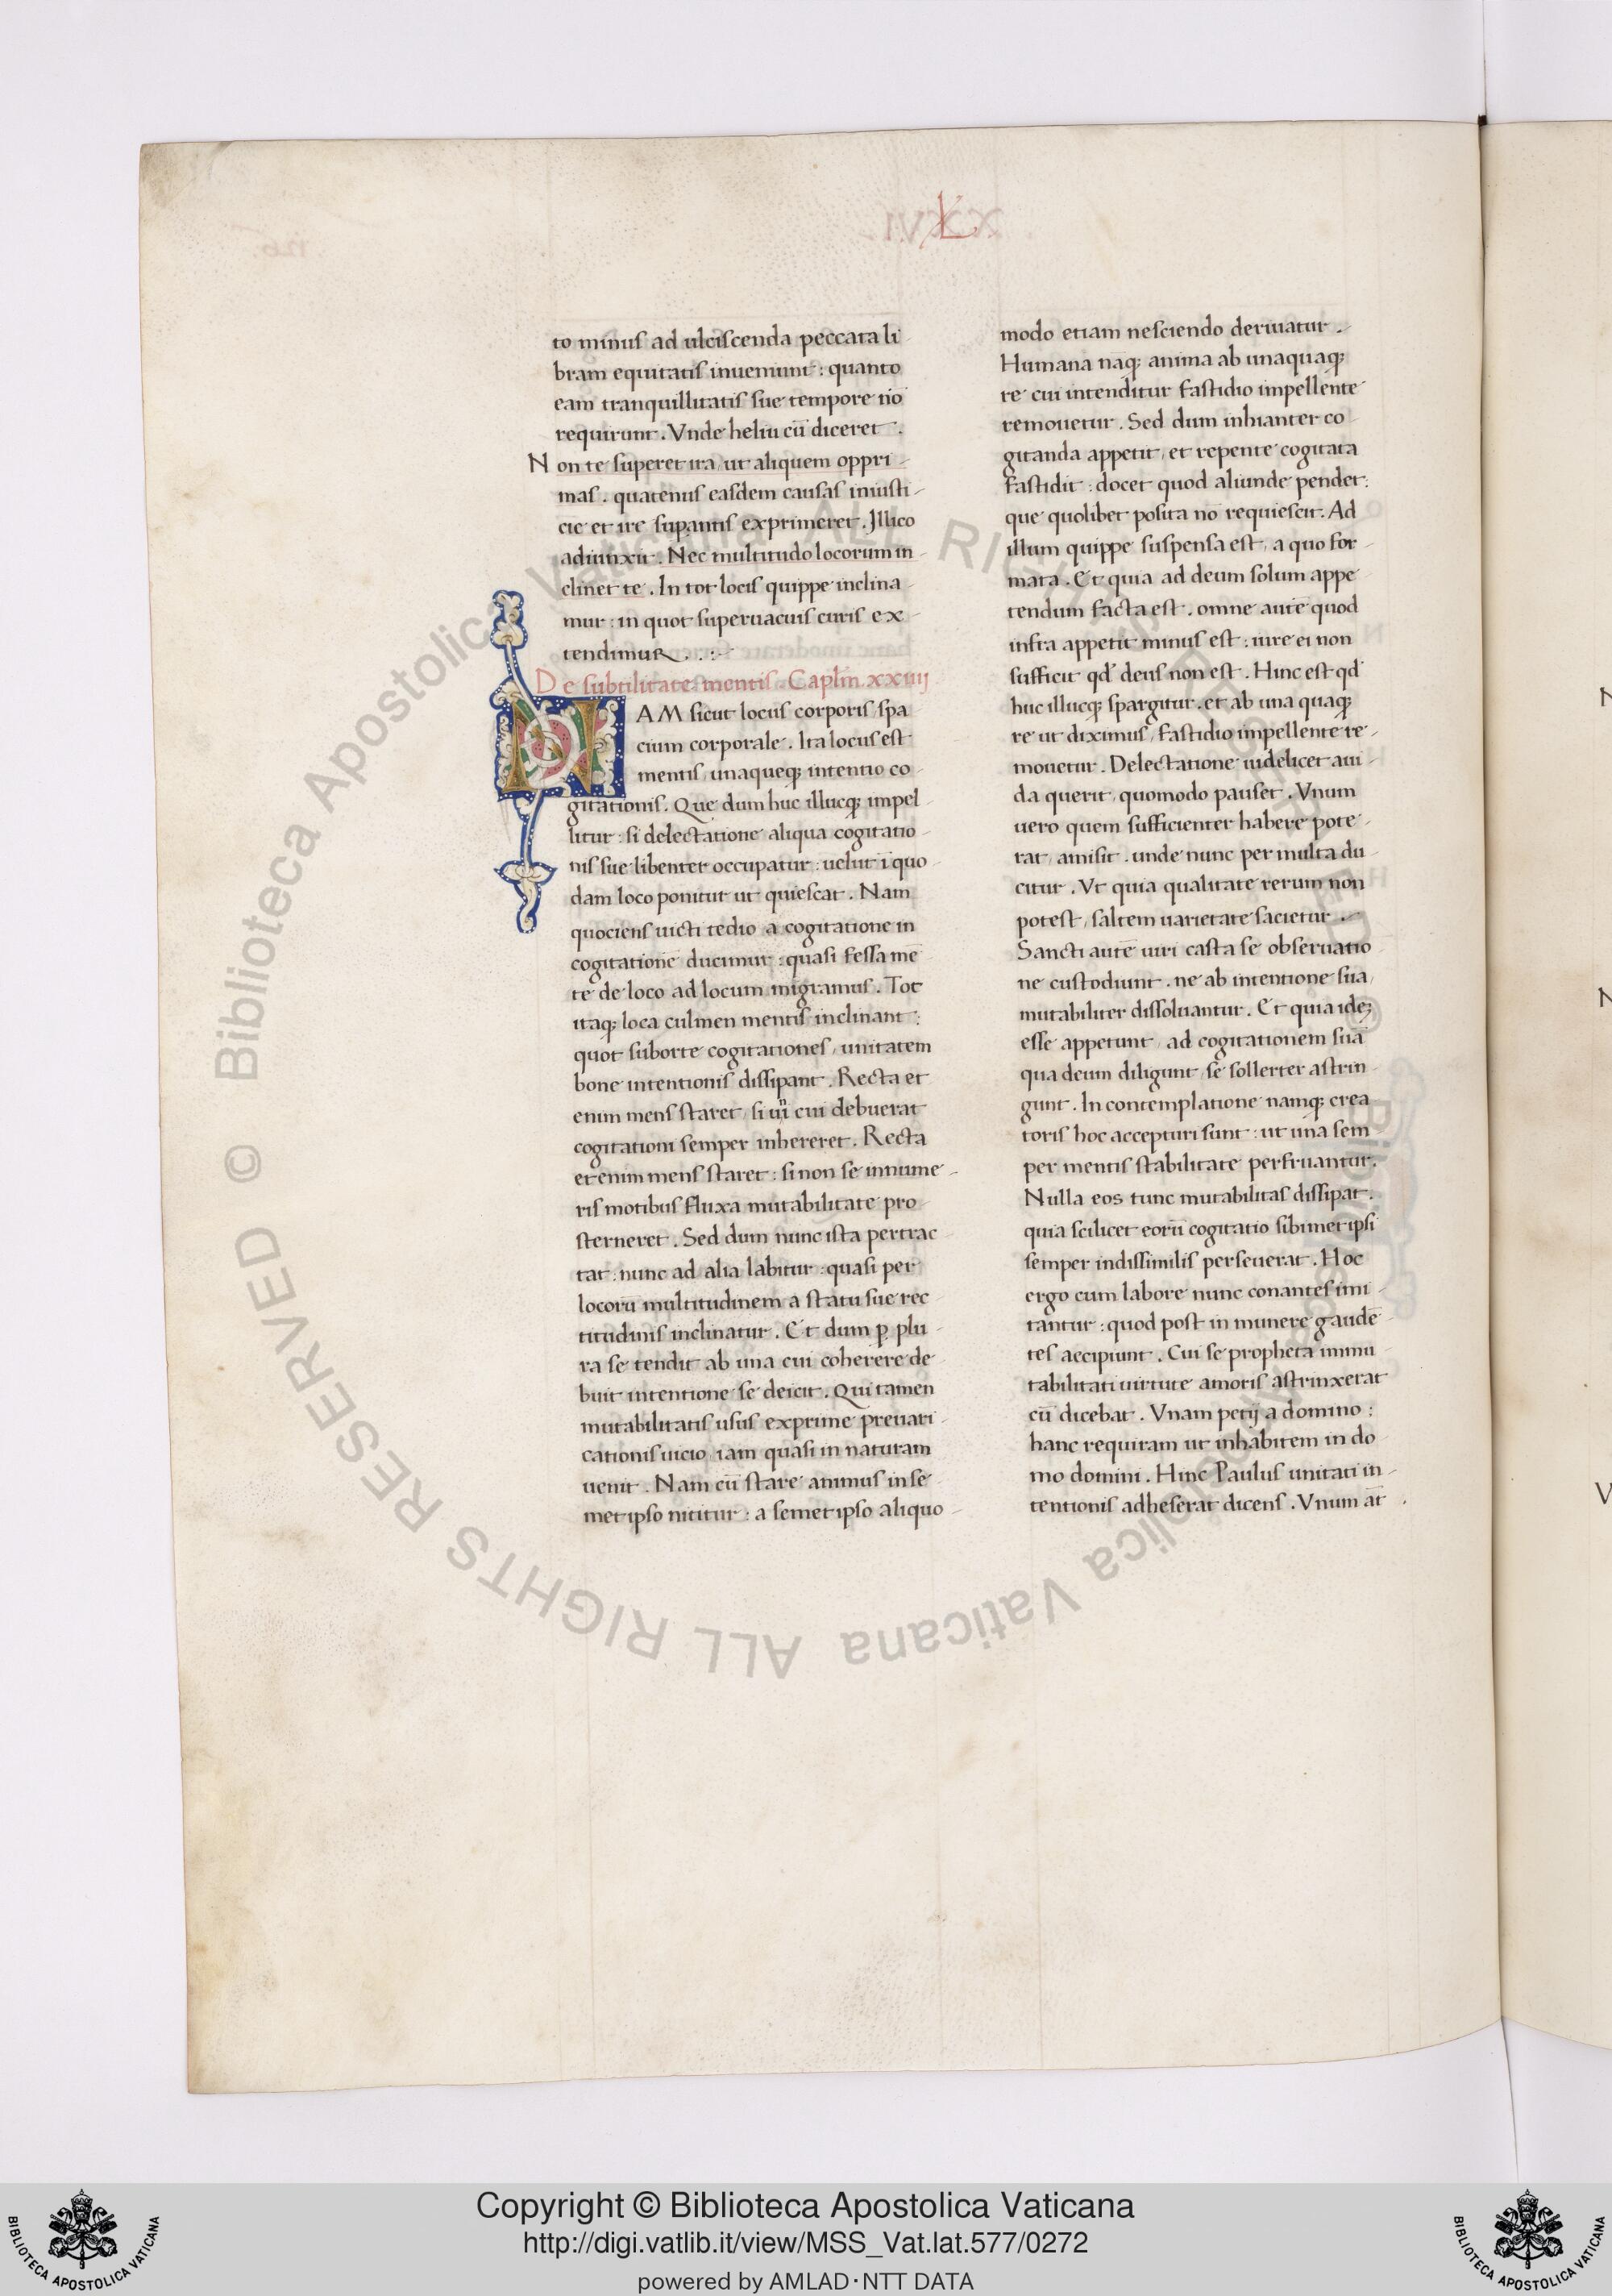 L
to minus ad ulciscenda peccata li
bram equitatis inueniunt : quanto
eam tranquillitatis sue tempore nō
requirunt . Vnde heliu cū diceret .
Non te superet ira / ut aliquem oppri
mas . quatenus easdem causas iniusti
cie et ire supantis exprimeret . Illico
adiunxit . Nec multitudo locorum in
clinet te . In tot locis quippe inclina
mur : in quot superuacuis curis ex
tendimur . : -
De subtilitate mentis . Caplm̄ . xxiiij
NAM sicut locus corporis spa
cium corporale . Ita locus est
mentis / unaqueq; intentio co
gitationis . Que dum huc illucq; impel
litur : si delectatione aliqua cogitatio
nis sue libenter occupatur : uelut ī quo
dam loco ponitur ut quiescat . Nam
quociens uicti tedio a cogitatione in
cogitationē ducimur : quasi fessa mē
te de loco ad locum migramus . Tot
itaq; loca culmen mentis inclinant :
quot suborte cogitationes / unitatem
bone intentionis dissipant . Recta et
enim mens staret / si uni cui debuerat
cogitationi semper inhereret . Recta
etenim mens staret : si non se innume
ris motibus fluxa mutabilitate pro
sterneret . Sed dum nunc ista pertrac
tat : nunc ad alia labitur : quasi per
locorū multitudinem a statu sue rec
titudinis inclinatur . Et dum ꝑ plu
ra se tendit ab una cui coherere de
buit intentione se deicit . Qui tamen
mutabilitatis usus exprime preuari
cationis uicio / iam quasi in naturam
uenit . Nam cū stare animus in se
met ipso nititur : a semet ipso aliquo
modo etiam nesciendo deriuatur .
Humana nāq; anima ab unaquaq;
re cui intenditur fastidio impellente
remouetur . Sed dum inhianter co
gitanda appetit / et repente cogitata
fastidit : docet quod aliunde pendet :
que quolibet posita nō requiescit . Ad
illum quippe suspensa est / a quo for
mata . Et quia ad deum solum appe
tendum facta est . omne autē quod
infra appetit minus est : iure ei non
sufficit qd' deus non est . Hinc est qd'
huc illucq; spargitur . et ab una quaq;
re ut diximus / fastidio impellente re
mouetur . Delectatione uidelicet aui
da querit / quomodo pauset . Vnum
uero quem sufficienter habere pote
rat / amisit . unde nunc per multa du
citur . Vt quia qualitate rerum non
potest / saltem uarietate sacietur .
Sancti autē uiri casta se obseruatio
ne custodiunt . ne ab intentione sua /
mutabiliter dissoluantur . Et quia idē;
esse appetunt / ad cogitationem suā
qua deum diligunt / se sollerter astrin
gunt . In contemplatione namq; crea
toris hoc accepturi sunt : ut una sem
per mentis stabilitate perfruantur .
Nulla eos tunc mutabilitas dissipat .
quia scilicet eorū cogitatio sibimet ipsi
semper indissimilis perseuerat . Hoc
ergo cum labore nunc conantes imi
tantur : quod post in munere gaudē
tes accipiunt . Cui se propheta inmu
tabilitati uirtute amoris astrinxerat
cū dicebat . Vnam petij a domino :
hanc requiram ut inhabitem in do
mo domini . Hinc Paulus unitati in
tentionis adheserat dicens . Vnum at̄
© Biblioteca Apostolica Vaticana ALL RIGHTS RESERVED
Copyright © Biblioteca Apostolica Vaticana
http://digi.vatlib.it/view/MSS_Vat.lat.577/0272
powered by AMLAD·NTT DATA
BIBLIOTECA APOSTOLICA VATICANA
BIBLIOTECA APOSTOLICA VATICANA